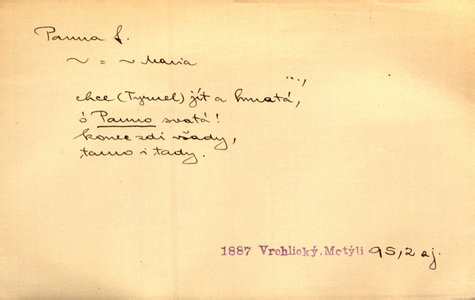 Panna f.
~ = ~ Maria
...,
chce (Tyrmel) jít a hmatá,
ó Panno svatá!
konec zdi všady,
tamo i tady.
1887 Vrchlický, Motýli 95,2 aj.